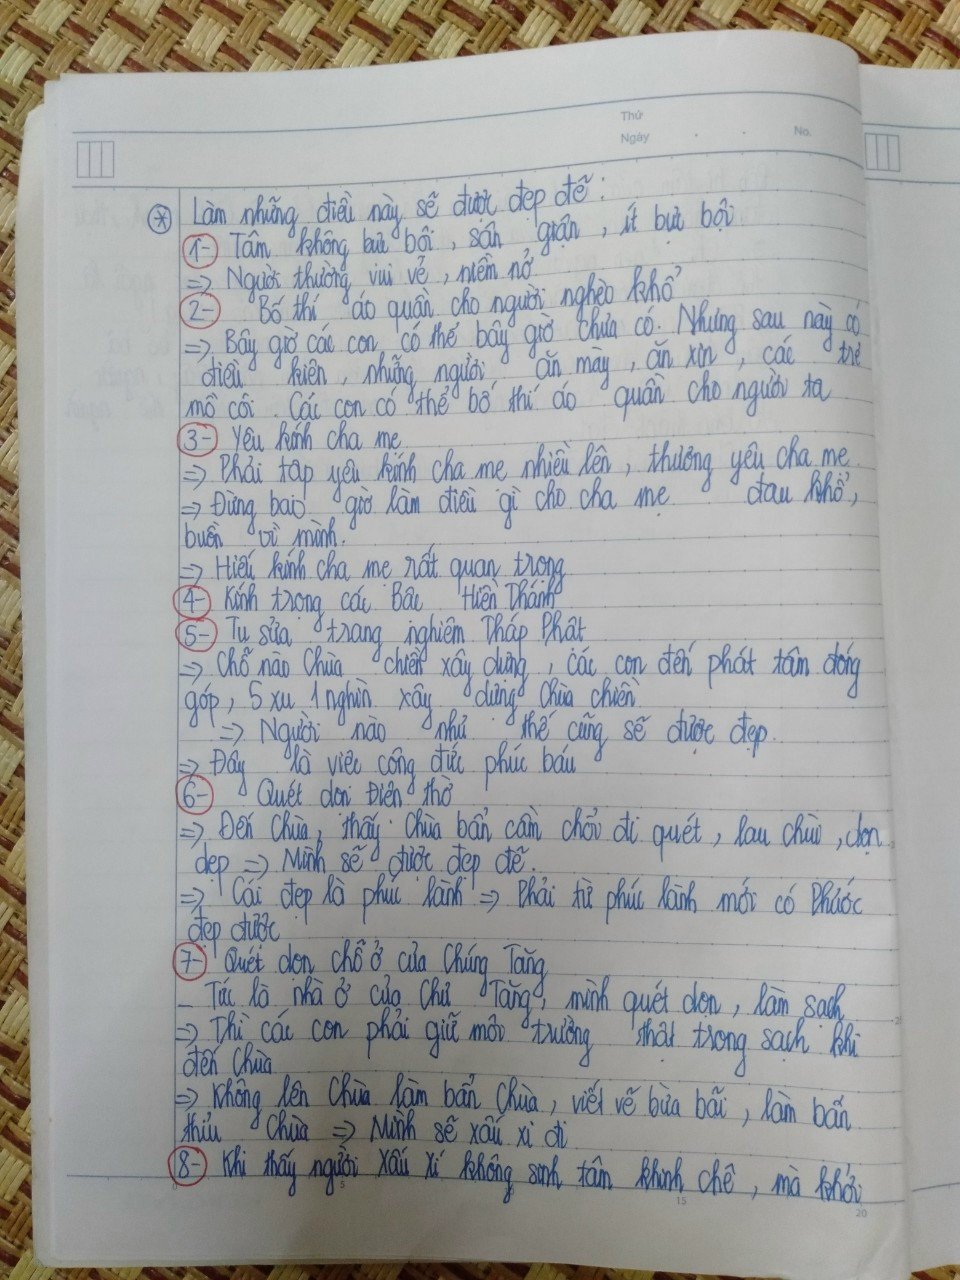 Thứ
Ngày . . No.
* Làm những điều này sẽ được đẹp đẽ :
1- Tâm không bực bội, sân giận, ít bực bội
=> Người thường vui vẻ, niềm nở
2- Bố thí áo quần cho người nghèo khổ
=> Bây giờ các con có thể bây giờ chưa có. Nhưng sau này có
điều kiện, những người ăn mày, ăn xin, các trẻ
mồ côi. Các con có thể bố thí áo quần cho người ta
3- Yêu kính cha mẹ
=> Phải tập yêu kính cha mẹ nhiều lên, thương yêu cha mẹ
=> Đừng bao giờ làm điều gì cho cha mẹ đau khổ,
buồn vì mình.
=> Hiếu kính cha mẹ rất quan trọng
4- Kính trọng các Bậc Hiền Thánh
5- Tu sửa trang nghiêm Tháp Phật
=> Chỗ nào Chùa chiền xây dựng, các con đến phát tâm đóng
góp, 5 xu 1 nghìn xây dựng Chùa chiền
=> Người nào như thế cũng sẽ được đẹp.
=> Đây là việc công đức phúc báu
6- Quét dọn Điện thờ
=> Đến Chùa, thấy Chùa bẩn cầm chổi đi quét, lau chùi, dọn
dẹp => Mình sẽ được đẹp đẽ.
=> Cái đẹp là phúc lành => Phải từ phúc lành mới có Phước
đẹp được
7- Quét dọn chỗ ở của Chúng Tăng
- Tức là nhà ở của Chư Tăng, mình quét dọn, làm sạch
=> Thì các con phải giữ môi trường thật trong sạch khi
đến Chùa
=> Không lên Chùa làm bẩn Chùa, viết vẽ bừa bãi, làm bẩn
thỉu Chùa => Mình sẽ xấu xí đi
8- Khi thấy người xấu xí không sinh tâm khinh chê, mà khởi
5 15 20